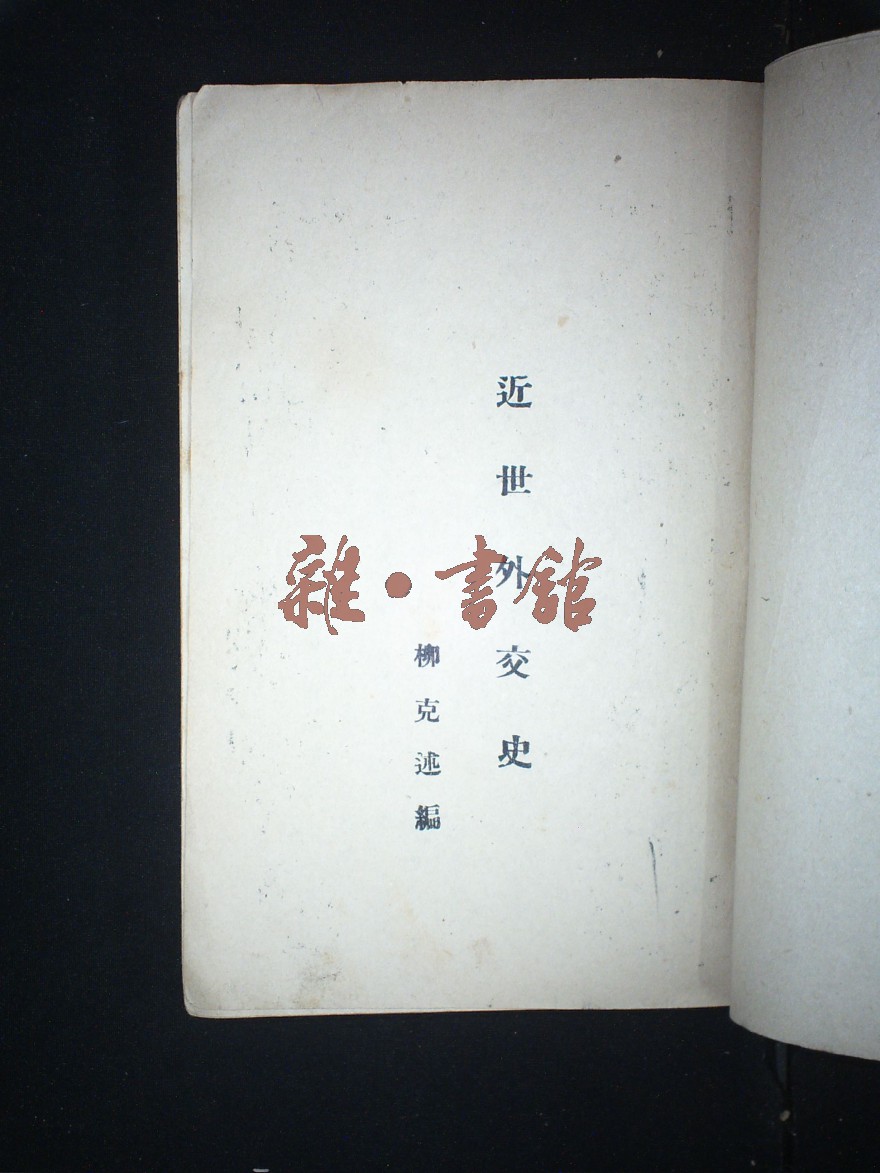 近世外交史
柳克述編
雜·書館